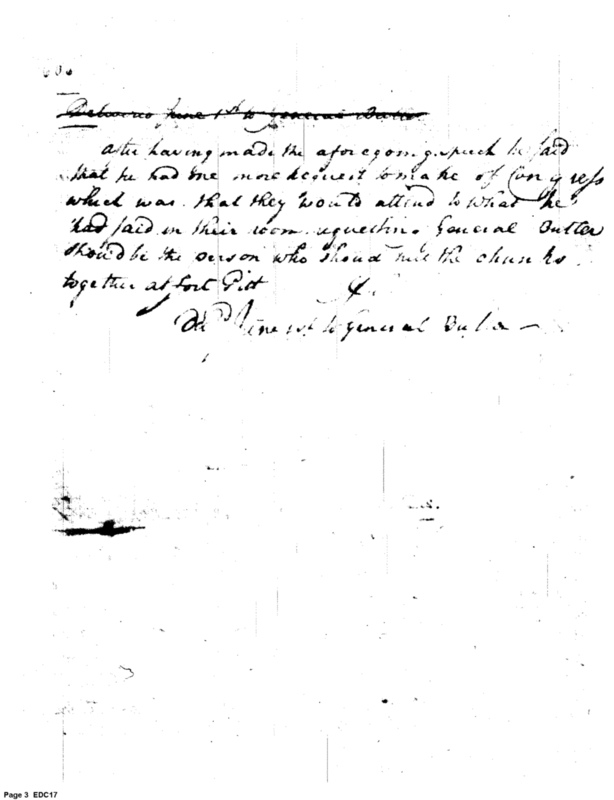 606
Delivered June 1st to General Butler
After having made the aforegoing speech he said
that he had one more request to make of Congress
which was that they would attend to what he
had said in their room requesting General Butler
should be the person who should the
together at Fort Pitt &c
Dd June 1st to General Butler
Page 3 EDC17